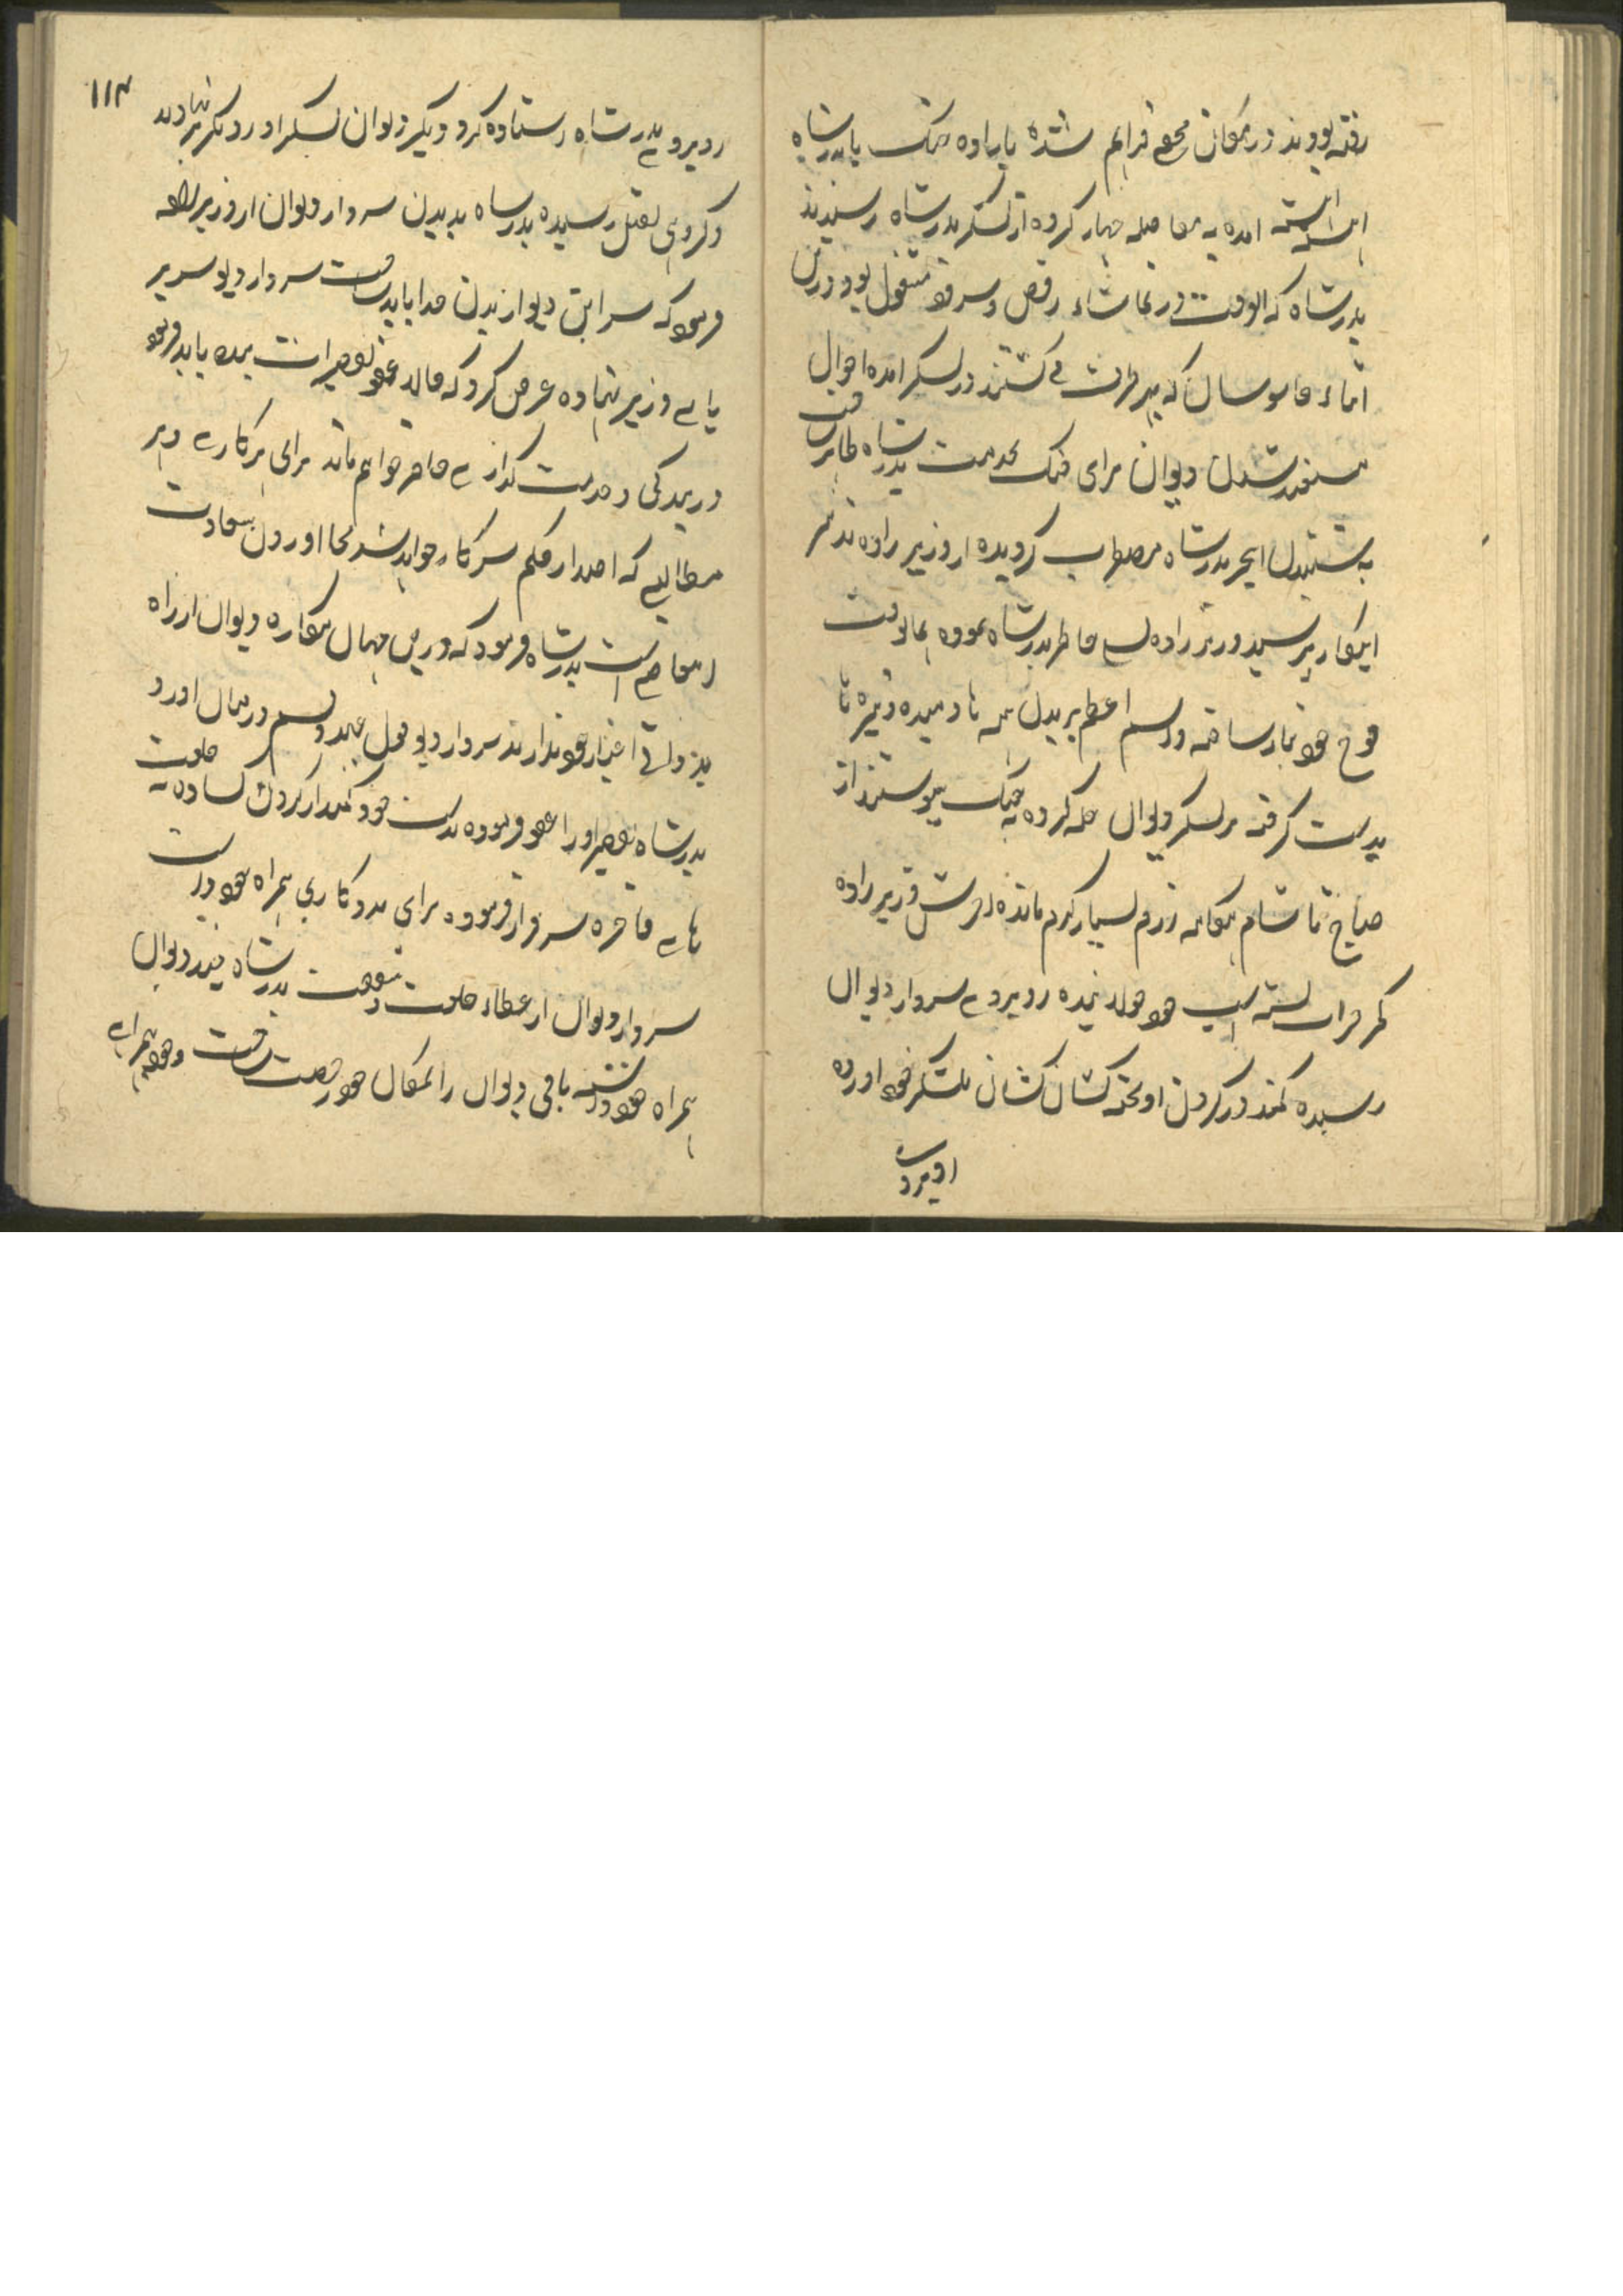 رفته بودند در مکان مجمع فراهم شده باراده جنک با بدرشاه
اهسته اهسته امده به فاصله چهار کروه از لشکر بدرشاه رسیدند
بدرشاه که الوقت در تماشاء رقص و سرود مشغول بود درین
اثناء جاسوسان که هر طرف می کشتند در لشکر امده احوال
مستعد شدن دیوان برای جنک بخدمت بدرشاه ظاهر ساخت
به شنیدن اینخبر بدرشاه مضطرب کردیده از وزیر زاده تدبیر
اینکار پرسید وزیر زاده تسلی خاطر بدرشاه نموده همانوقت
فوج خود تیار ساخته و اسم اعظم بر بدن همه ها دمیده و نیزه ها
بدست کرفته بر لشکر دیوان حمله کرده بجنک پیوستند از
صباح تا شام هنکامه رزم بسیار کرم مانده اخرش وزیر زاده
کمر مردانه بسته اسپ خود جولان نموده روبروی سردار دیوان
رسیده کمند در کردن او انداخته کشان کشان بلشکر خود اورده
روبروی
۱۱۴
روبروی بدرشاه استاده کرد و دیکر دیوان لشکر او رو بکریز نهادند
و کروهی بقتل رسیده بدرشاه بدیدن سردار دیوان از وزیر زاده
فرمود که سر این دیو از بدن جدا باید ساخت سردار دیو سر بر
پای وزیر نهاده عرض کرد که حالا عفو تقصیرات بنده باید فرمود
در بندکی و خدمت کذاری حاضر خواهم ماند برای هر کاری و هر
مطالبی که اصدار حکم سرکار خواهد شد بجا اوردن سعادت
اینجانب است بدرشاه فرمود که دریں جهان همکاره دیوان از راه
بدذاتی اعتبار خود ندارند سردار دیو قول عهد و قسم درمیان اورد
بدرشاه تقصیر او را عفو فرموده بدست خود کمند از کردن کشاده به خلعت
های فاخره سرفراز فرموده برای مددکاری همراه خود داشت
سردار دیوان از عطاء خلعت و شفقت بدرشاه چند دیوان
همراه خود داشته باقی دیوان را بمکان خود رخصت ساخت و خود همراه